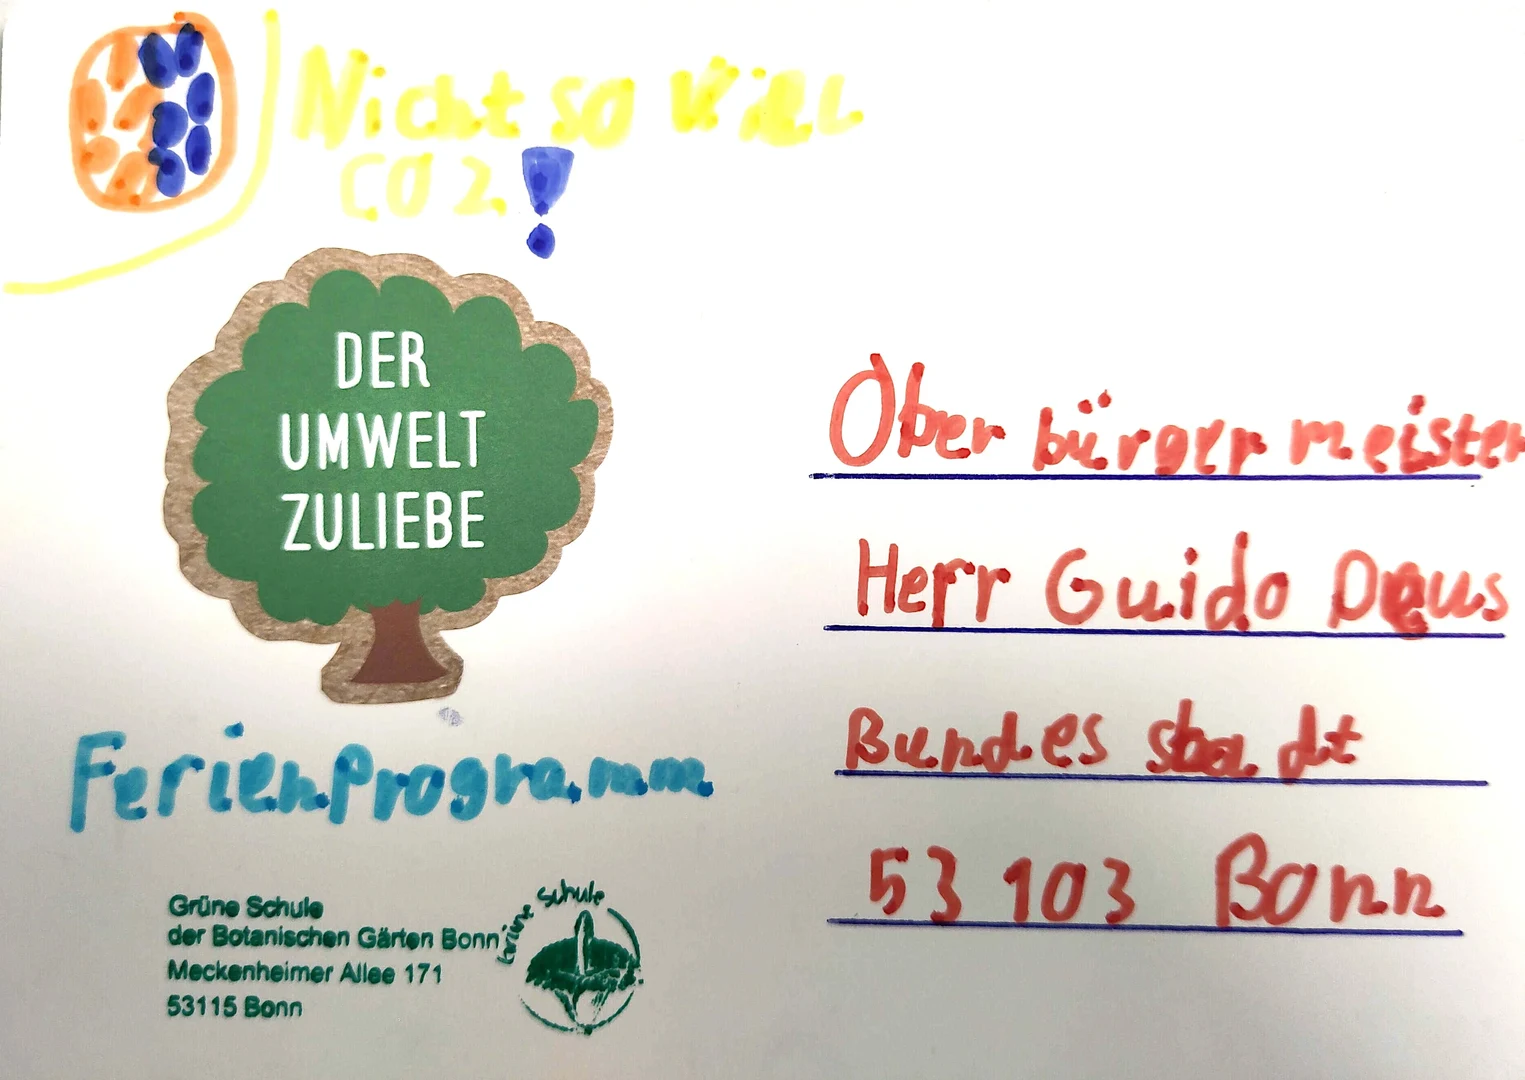 Nicht so viel
CO2!
DER
UMWELT
ZULIEBE
Ferienprogramm
Grüne Schule
der Botanischen Gärten Bonn
Meckenheimer Allee 171
53115 Bonn
Grüne Schule
Ober bürger meister
Herr Guido Deus
Bundes stadt
53 103 Bonn